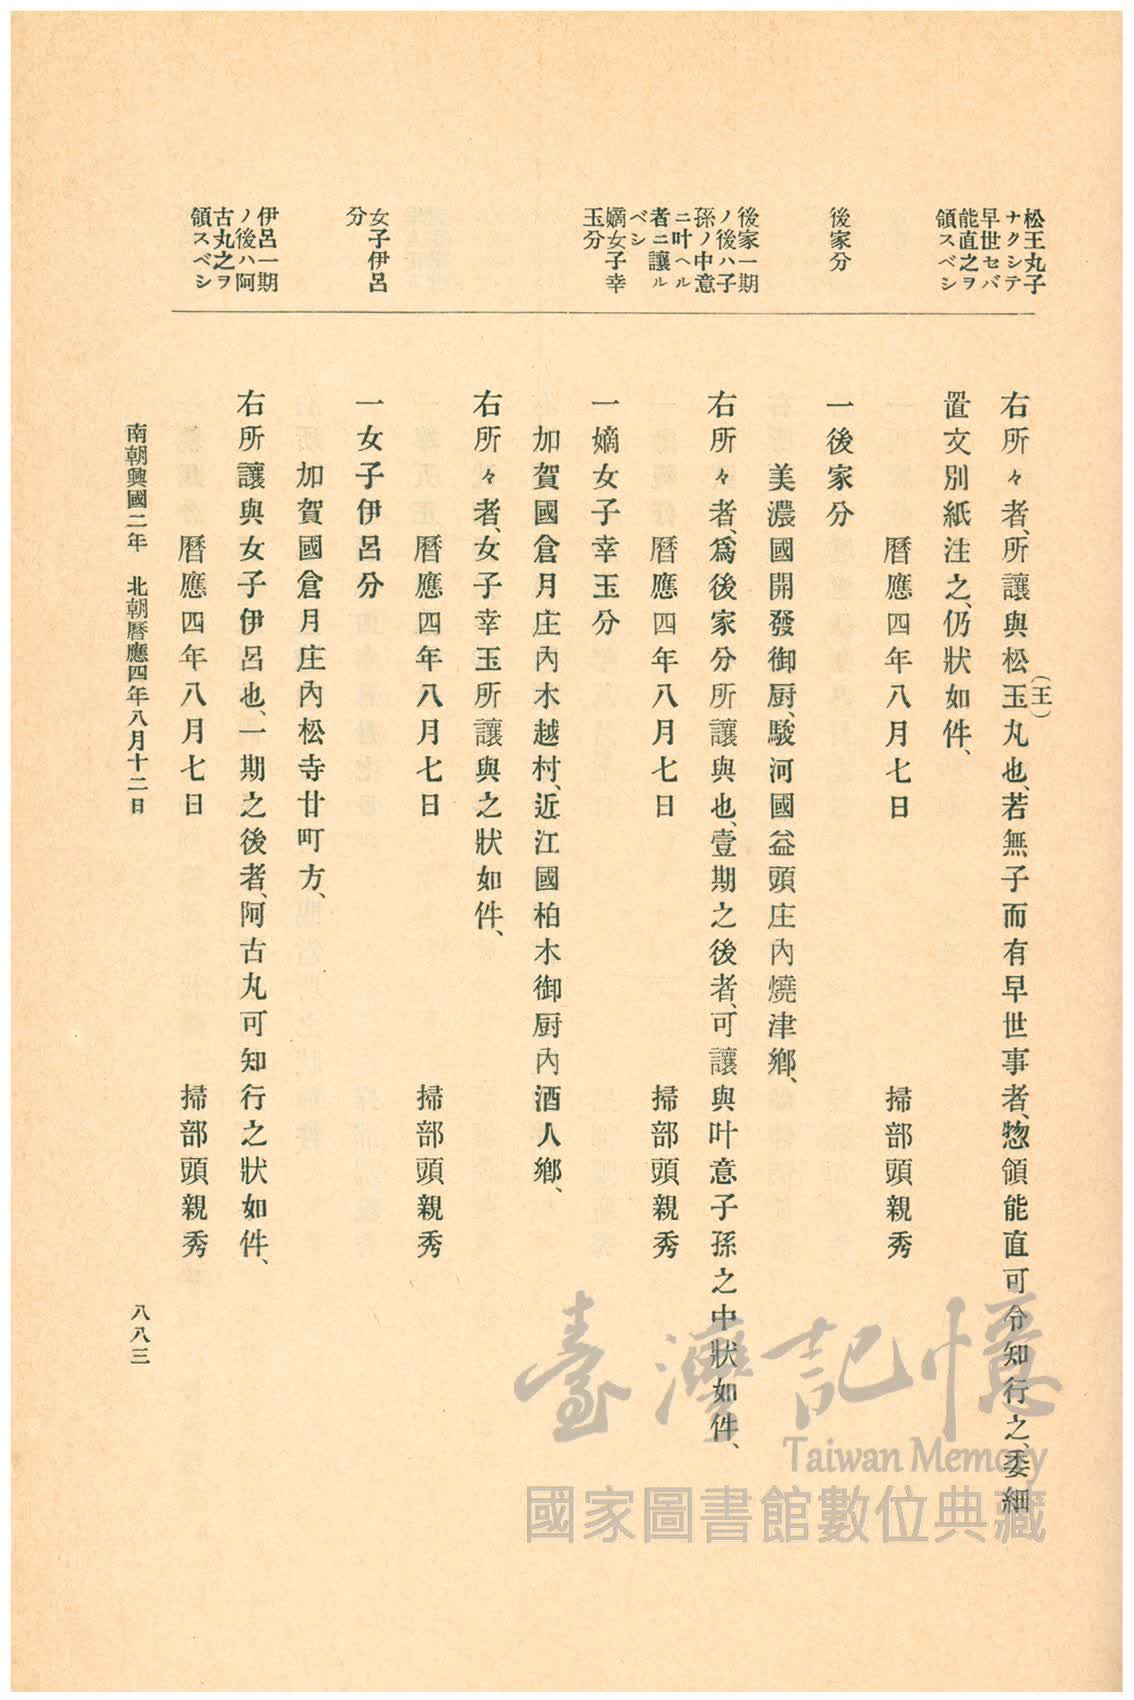 松王丸子
ナクシテ
早世セバ
能直之ヲ
領スベシ
後家分
後家一期
ノ後ハ子
孫ノ中意
ニ叶ヘル
者ニ讓ル
ベシ
嫡女子幸
玉分
女子伊呂
分
伊呂一期
ノ後ハ阿
古丸之ヲ
領スベシ
右所々者、所讓與松玉(王)丸也、若無子而有早世事者、惣領能直可令知行之、委細
置文別紙注之、仍狀如件、
曆應四年八月七日　掃部頭親秀
一後家分
美濃國開發御厨、駿河國益頭庄內燒津鄕、
右所々者、爲後家分所讓與也、壹期之後者、可讓與叶意子孫之中狀如件、
曆應四年八月七日　掃部頭親秀
一嫡女子幸玉分
加賀國倉月庄內木越村、近江國柏木御厨內酒人鄕、
右所々者、女子幸玉所讓與之狀如件、
曆應四年八月七日　掃部頭親秀
一女子伊呂分
加賀國倉月庄內松寺廿町方、
右所讓與女子伊呂也、一期之後者、阿古丸可知行之狀如件、
曆應四年八月七日　掃部頭親秀
南朝興國二年　北朝曆應四年八月十二日
八八三
臺灣記憶
Taiwan Memory
國家圖書館數位典藏